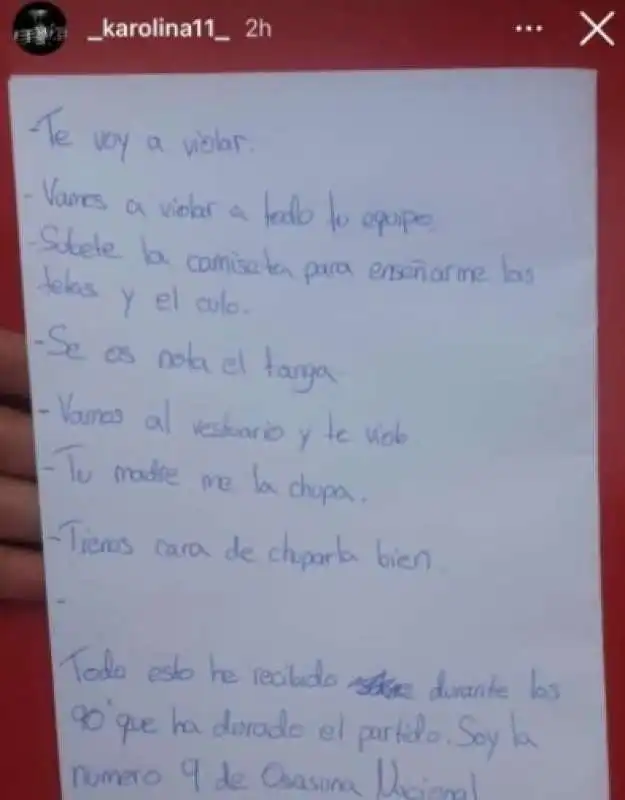 _karolina11_ 2h
-Te voy a violar.
- Vamos a violar a todo tu equipo.
-Súbete la camiseta para enseñarme las
tetas y el culo.
-Se os nota el tanga
- Vamos al vestuario y te violo
- Tu madre me la chupa.
-Tienes cara de chuparla bien
-
Todo esto he recibido durante los
90' que ha durado el partido. Soy la
número 9 de Osasuna Nacional